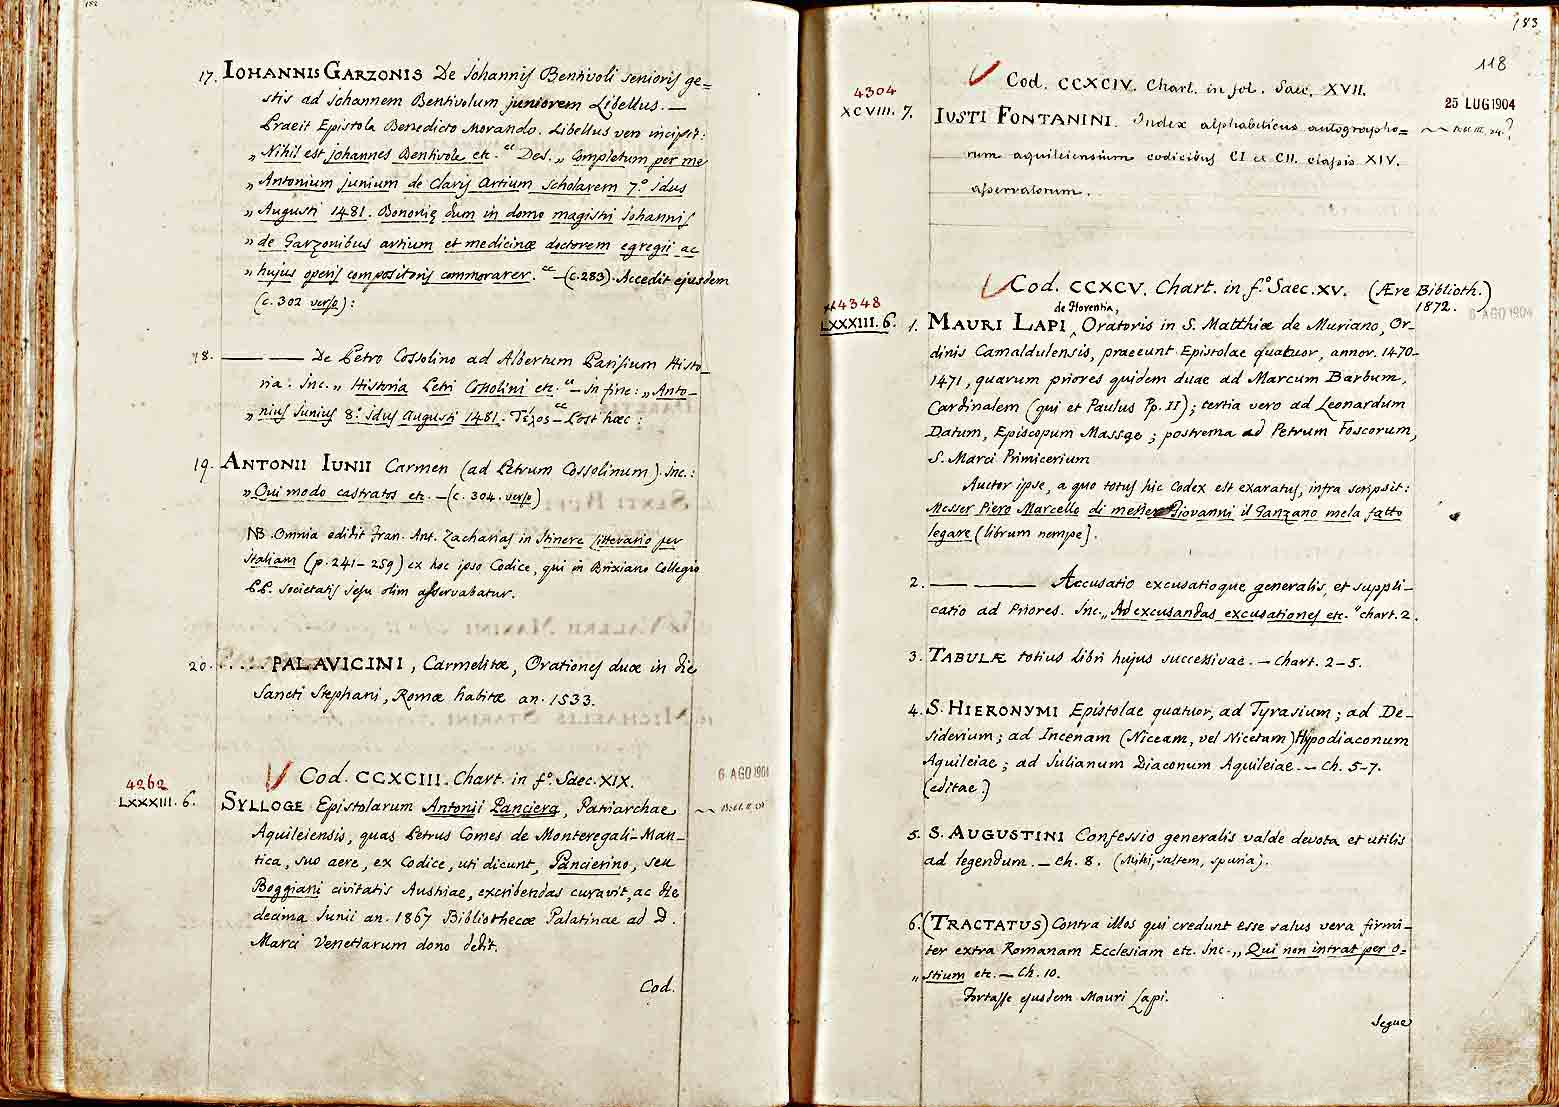 182
17. IOHANNIS GARZONIS De Johannis Bentivoli senioris ge=
stis ad Johannem Bentivolum juniorem Libellus. —
Praeit Epistola Benedicto Morando. Libellus vero incipit:
„ Nihil est Johannes Bentivole etc. “ Des. „ Completum per me
„ Antonium junium de Claris Artium scholarem 7.º idus
„ Augusti 1481. Bononię dum in domo magistri Johannis
„ de Garzonibus artium et medicinæ doctorem egregii ac
„ hujus operis compositoris commorarer. “ — (c. 283). Accedit ejusdem
(c. 302 verso):
18. —— —— De Petro Cossolino ad Albertum Parisium Histo_
ria. Inc. „ Historia Petri Cossolini etc. “ — In fine: „ Anto—
„ nius Junius 8.º idus Augusti 1481. Τέλος “ — Post haec:
19. ANTONII IUNII Carmen (ad Petrum Cossolinum). Inc.:
„ Qui modo castratos etc. — (c. 304. verso)
NB. Omnia edidit Fran. Ant. Zacharias in Itinere litterario per
Italiam (p. 241–259) ex hoc ipso Codice, qui in Brixiano Collegio
PP. Societatis Jesu olim asservabatur.
20. ..... PALAVICINI, Carmelitæ, Orationes duæ in die
Sancti Stephani, Romæ habitæ an. 1533.
4262
LXXXIII. 6.
Cod. CCXCIII. Chart. in f.º Saec. XIX.
6 AGO 1904
SYLLOGE Epistolarum Antonii Pancierą, Patriarchae
Aquileiensis, quas Petrus Comes de Monteregali-Man-
tica, suo aere, ex Codice, uti dicunt, Pancierino, seu
Boggiani civitatis Austriae, excribendas curavit, ac die
decima Junii an. 1867 Bibliothecæ Palatinae ad D.
Marci Venetiarum dono dedit.
Cod.
183
118
4304
XCVIII. 7.
Cod. CCXCIV. Chart. in fol. Saec. XVII.
25 LUG 1904
IUSTI FONTANINI. Index alphabeticus autographo=
rum aquileiensium codicibus CI et CII. classis XIV.
asservatorum.
Cod. CCXCV. Chart. in f.º Saec. XV. (Ære Biblioth.)
1872.
6 AGO 1904
4348
LXXXIII. 6.
de Florentia,
1. MAURI LAPI, Oratoris in S. Matthiæ de Muriano, Or-
dinis Camaldulensis, praeeunt Epistolae quatuor, annor. 1470-
1471, quarum priores quidem duae ad Marcum Barbum,
Cardinalem (qui et Paulus Pp. II); tertia vero ad Leonardum
Datum, Episcopum Massae; postrema ad Petrum Foscorum,
S. Marci Primicerium
Auctor ipse, a quo totus hic Codex est exaratus, infra scripsit:
Messer Piero Marcello di messer Giovanni il Ganzano mela fatto
legare (librum nempe).
2. —— —— Accusatio excusatioque generalis, et suppli—
catio ad Priores. Inc. „Ad excusandas excusationes etc. “ chart. 2.
3. TABULÆ totius libri hujus successivae. — Chart. 2–5.
4. S. HIERONYMI Epistolae quatuor, ad Tyrasium; ad De—
siderium; ad Incenam (Niceam, vel Nicetam) Hypodiaconum
Aquileiae; ad Julianum Diaconum Aquileiae. — Ch. 5–7.
(editae.)
5. S. AUGUSTINI Confessio generalis valde devota et utilis
ad legendum. — Ch. 8. (Mihi, saltem, spuria).
6. (TRACTATUS) Contra illos qui credunt esse salus vera firmi—
ter extra Romanam Ecclesiam etc. Inc. „ Qui non intrat per o=
„ stium etc. — Ch. 10.
Fortasse ejusdem Mauri Lapi.
Segue